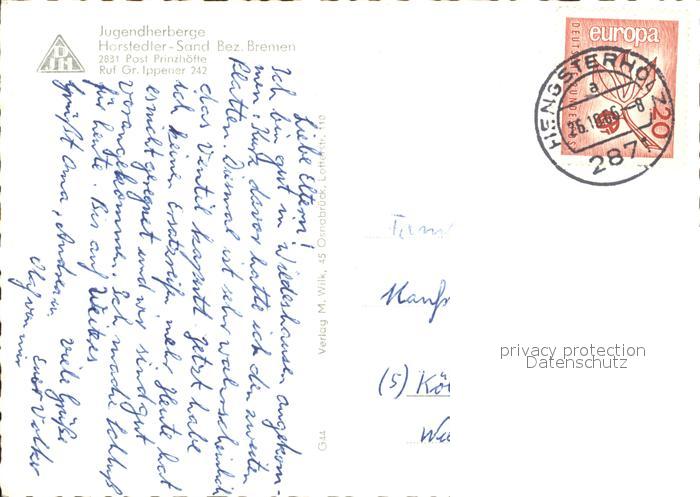 Jugendherberge
Horstedler-Sand Bez. Bremen
2831 Post Prinzhöfte
Ruf Gr. Ippener 242
DJH
Liebe Eltern!
Ich bin gut in Wildeshausen angekom
men. Kurz davor hatte ich den zweiten
Platten. Diesmal ist sehr wahrscheinlich
das Ventil kaputt. Jetzt habe
ich keinen Ersatzreifen mehr. Heute hat
es nicht geregnet und wir sind gut
vorangekommen. Ich mache Schluß
für heute. Bis auf Weiteres
Grüßt Oma, Andrea u. Viele Grüße
von mir Euer Volker
Verlag M. Wilk, 45 Osnabrück, Lotterstr. 110
G44
europa
DEUTSCHE BUNDESPOST
20
HENGSTERHOLZ
a
26.1066-8
287
(5) Kö
privacy protection
Datenschutz